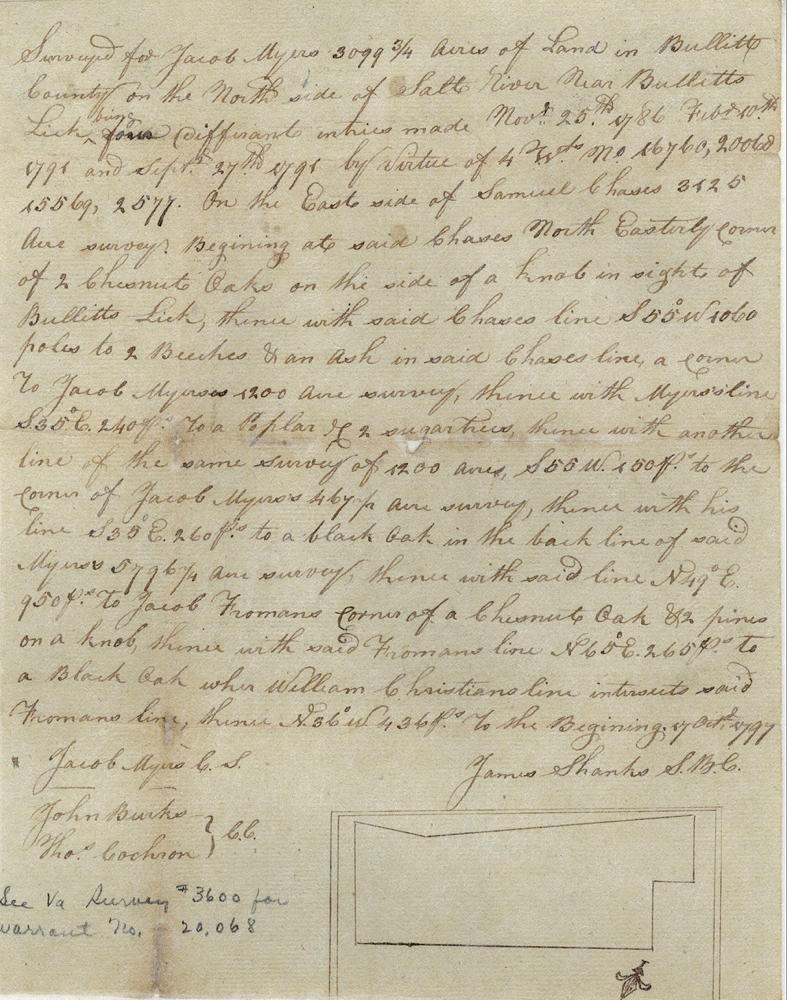 Surveyed for Jacob Myers 3099 3/4 Acres of Land in Bullitt
County on the North side of Salt River Near Bullitts
Lick, being four Differant intries made Novr. 25th. 1786 Febr 10th
1791 and Sept. 27th 1791 by Virtue of 4 Wts No 16760, 20068
15569, 2577. On the East side of Samuel Chases 3125
Acre survey: Begining at said Chases North Easterly Corner
of 2 Chesnut Oaks on the side of a knob in sight of
Bullitts Lick, thence with said Chases line S 55° W 1060
poles to 2 Beeches & an Ash in said Chases line, a corner
To Jacob Myerses 1200 Acre survey, thence with Myers's line
S 35° E. 240 ps. To a Poplar & 2 sugartrees, thence with another
line of the same survey of 1200 acres, S 55 W. 150 ps. to the
corner of Jacob Myers's 467 p acre survey, thence with his
line S 35° E. 260 ps. to a black Oak in the back line of said
Myers's 5796 /4 acre survey, thence with said line N 49° E.
950 ps. To Jacob Fromans Corner of a Chesnut Oak & 2 pines
on a knob, thence with said Fromans line N 65° E. 265 ps. to
a Black Oak wher William Christians line intersects said
Fromans line, thence N. 36° W. 436 ps. To the Begining. 17 Octr. 1797
Jacob Myers C. S.
James Shanks S.B.C.
John Burks
Thos. Cochron } C.C.
See Va Survey #3600 for
warrant No. - 20,068